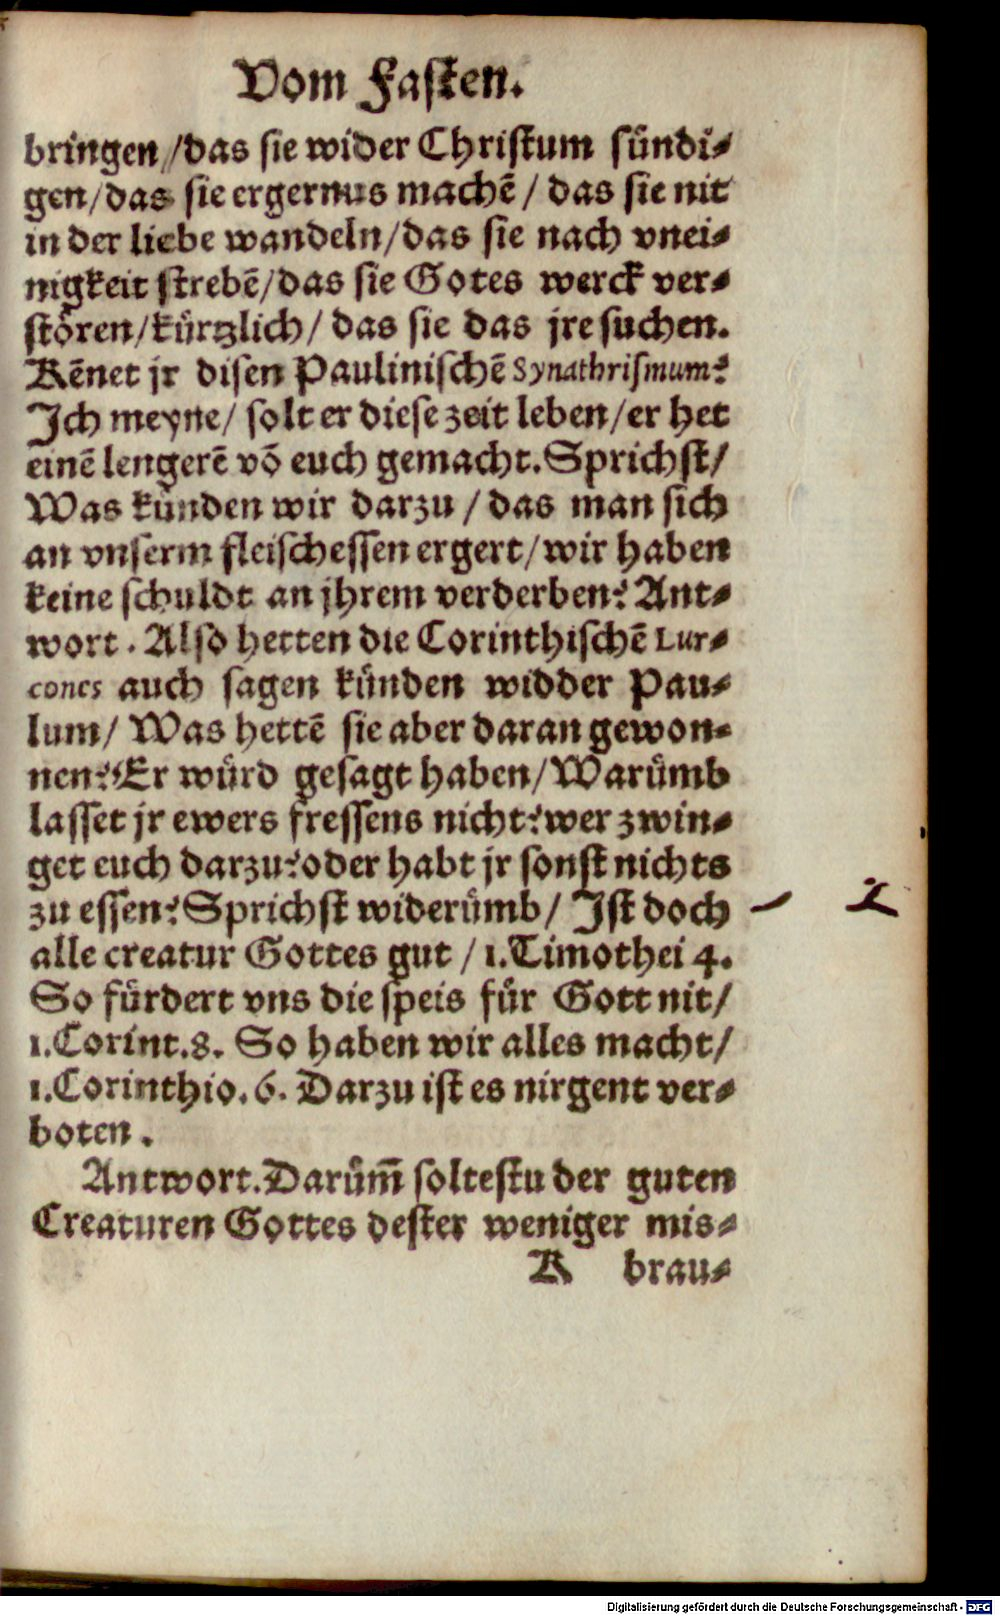 Vom Fasten.
bringen / das sie wider Christum sündi⸗
gen / das sie ergernus machẽ / das sie nit
in der liebe wandeln / das sie nach vnei⸗
nigkeit strebẽ / das sie Gotes werck ver⸗
stören / kürtzlich / das sie das jre suchen.
Kẽnet jr disen Paulinischẽ Synathrismum?
Ich meyne / solt er diese zeit leben / er het
einẽ lengerẽ võ euch gemacht. Sprichst /
Was künden wir darzu / das man sich
an vnserm fleischessen ergert / wir haben
keine schuldt an jhrem verderben? Ant⸗
wort. Also hetten die Corinthischẽ Lur⸗
cones auch sagen künden widder Pau⸗
lum / Was hettẽ sie aber daran gewon⸗
nen? Er würd gesagt haben / Warümb
lasset jr ewers fressens nicht? wer zwin⸗
get euch darzu? oder habt jr sonst nichts
zu essen? Sprichst widerümb / Ist doch
alle creatur Gottes gut / 1. Timothei 4.
So fürdert vns die speis für Gott nit /
1. Corint. 8. So haben wir alles macht /
1. Corinthio. 6. Darzu ist es nirgent ver⸗
boten.
Antwort. Darüm̃ soltestu der guten
Creaturen Gottes dester weniger mis⸗
K brau⸗
Digitalisierung gefördert durch die Deutsche Forschungsgemeinschaft - DFG